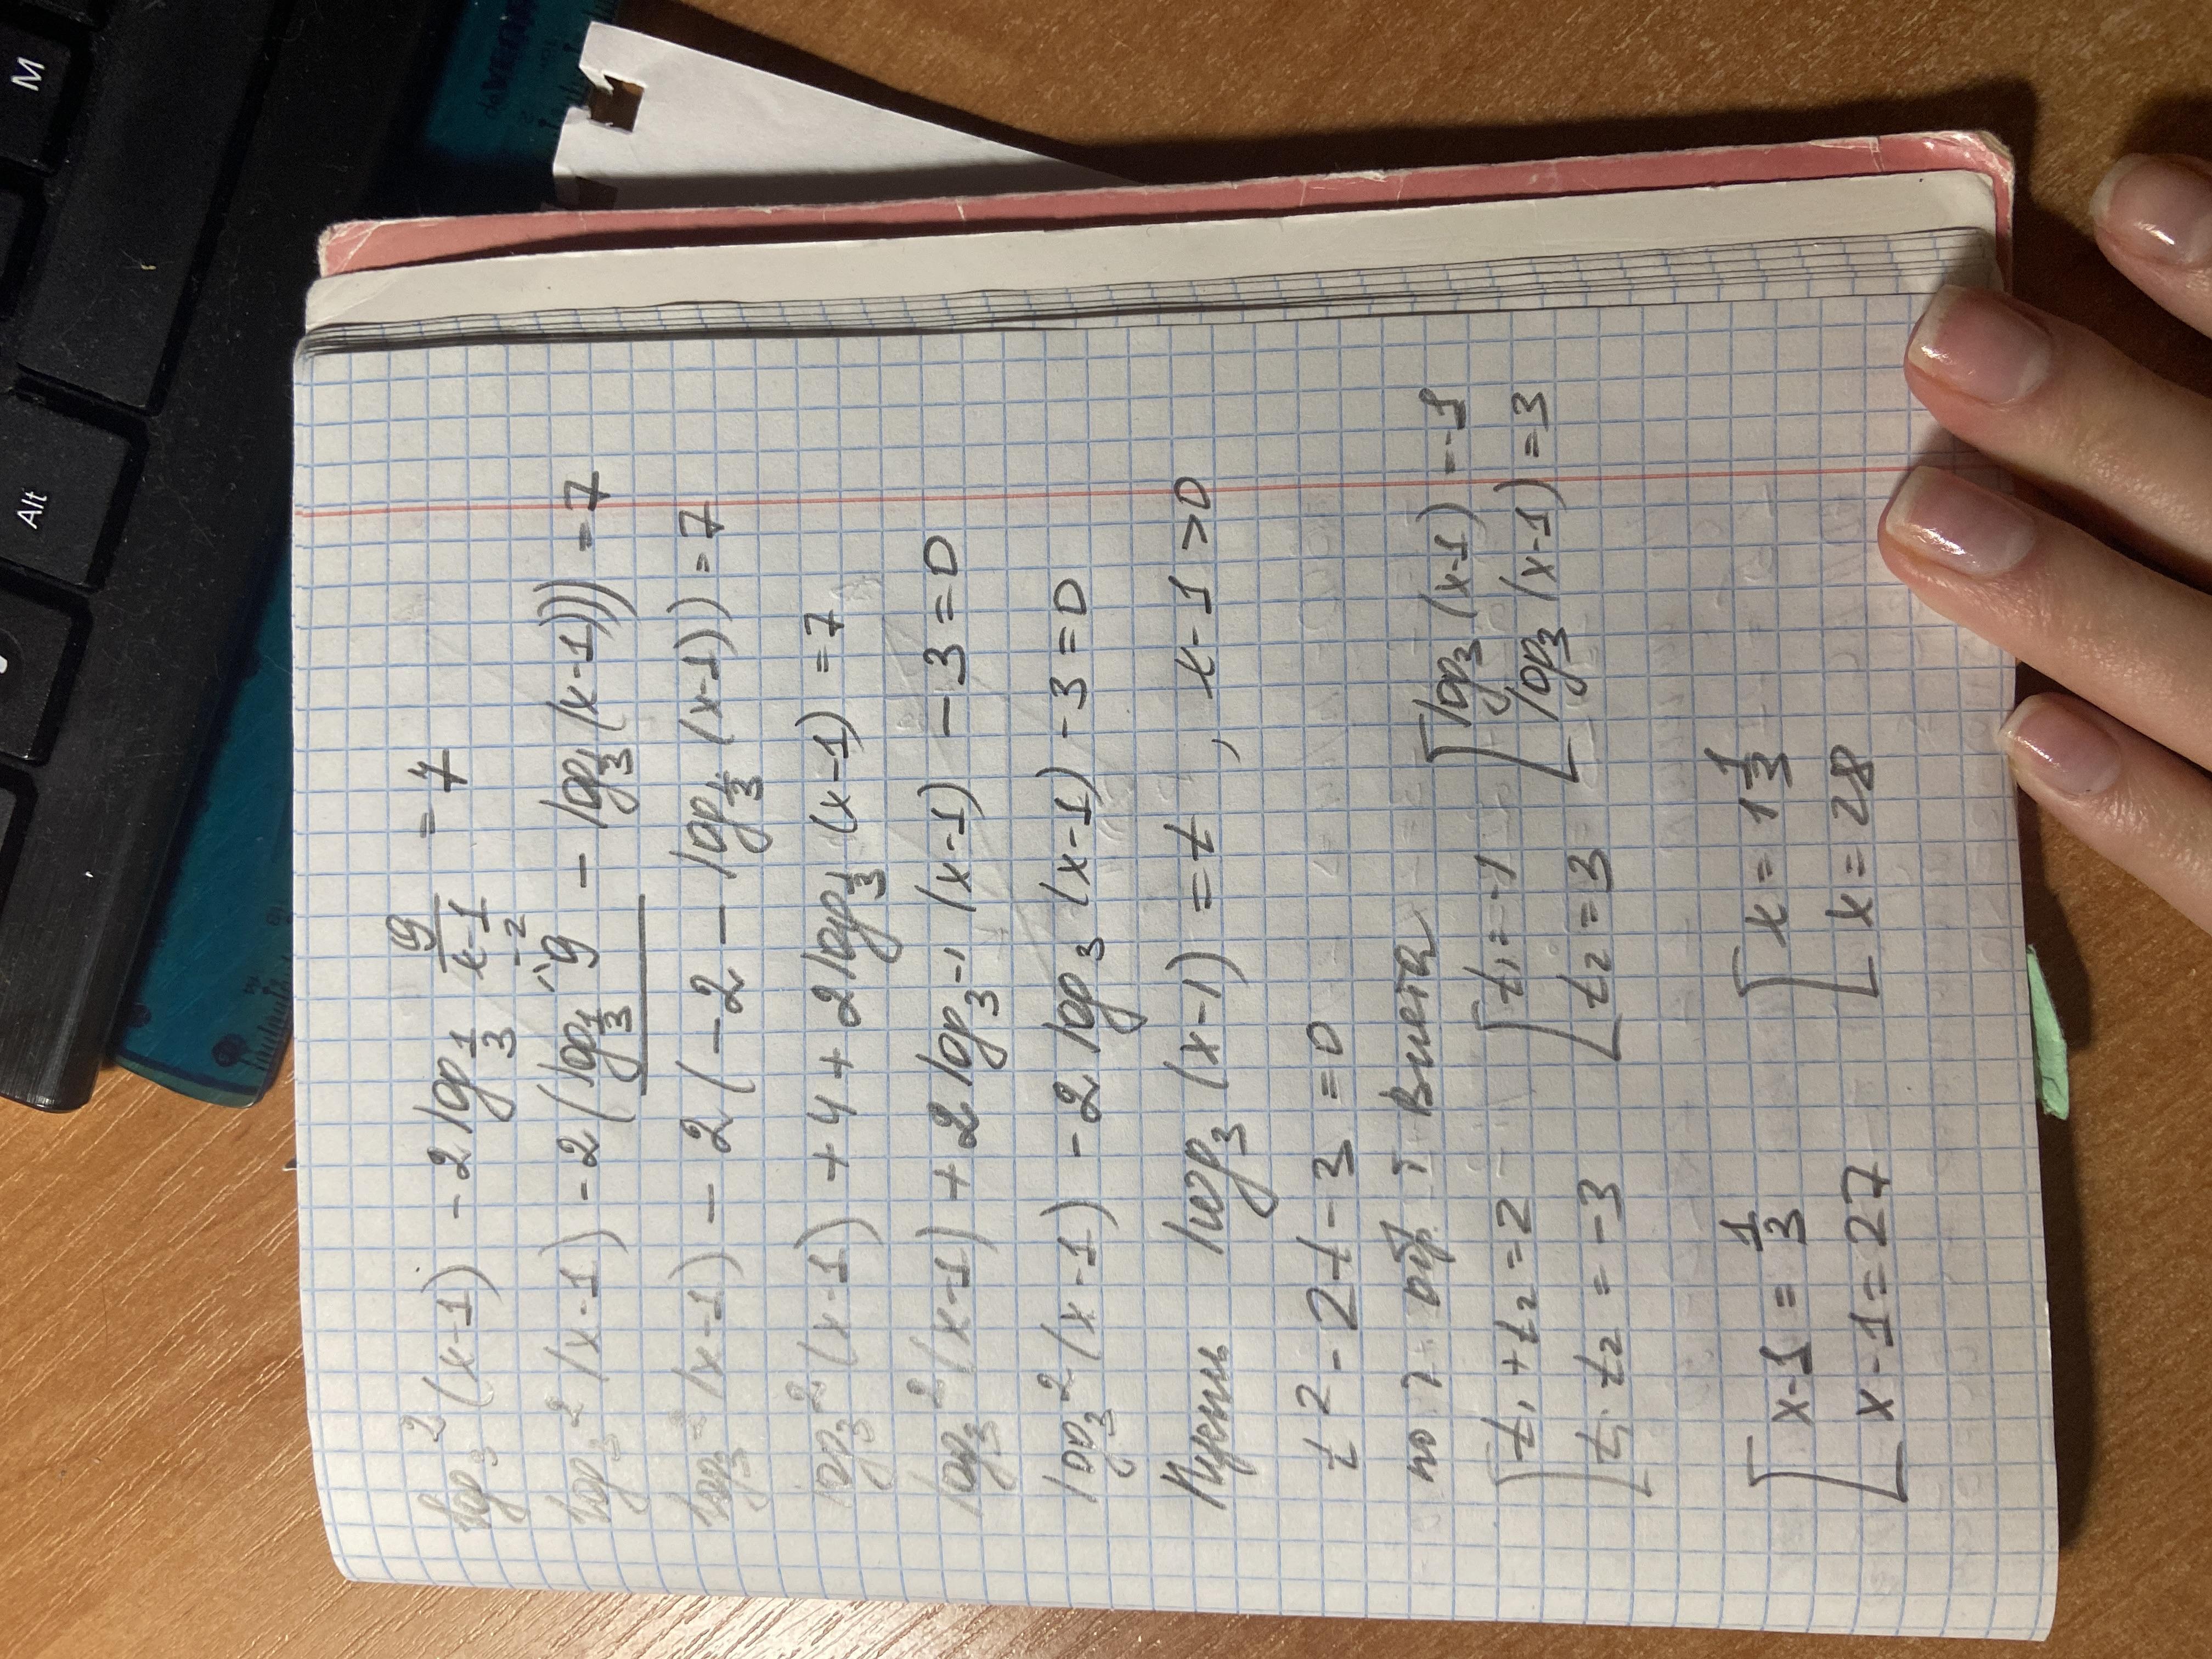 M
Alt
log₃²(x-1) - 2log 1/3 9/(x-1) = 7
log₃²(x-1) - 2(log 1/3 9 - log 1/3 (x-1))) = 7
-2
log₃²(x-1) - 2(-2 - log 1/3 (x-1)) = 7
log₃²(x-1) + 4 + 2log 1/3 (x-1) = 7
log₃²(x-1) + 2log₃⁻¹(x-1) - 3 = 0
log₃²(x-1) - 2log₃(x-1) - 3 = 0
Пусть log₃(x-1) = t, x-1 > 0
t² - 2t - 3 = 0
по т. обр. т. Виета
[t₁ + t₂ = 2 [t₁ = -1 [log₃(x-1) = -1
[t₁ · t₂ = -3 [t₂ = 3 [log₃(x-1) = 3
[x-1 = 1/3 [x = 1 1/3
[x-1 = 27 [x = 28